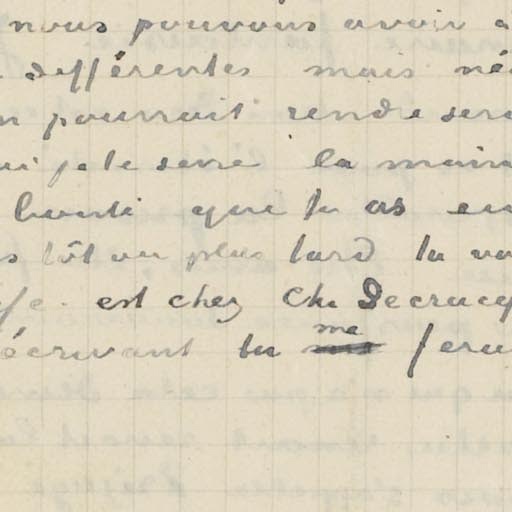 nous pouvons avoir a
différentes mais né
n pourrait rende serv
ui je te serre la main
bonté que tu as eu
s tôt ou plus tard tu
est chez Ch. Decracq
écrivant tu me fera